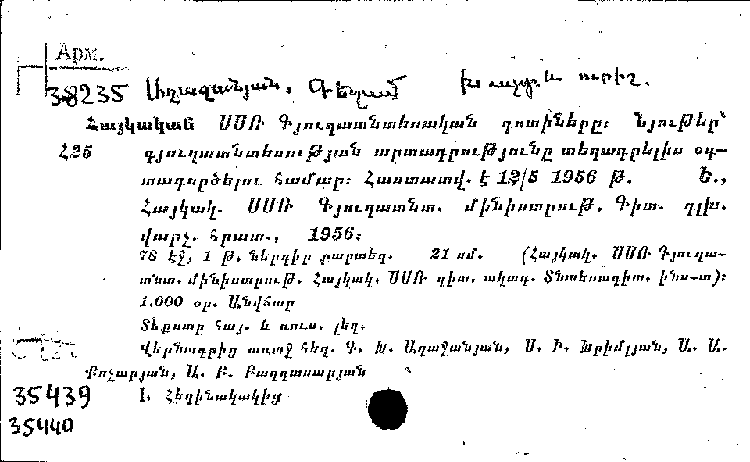 Арм.
38235 Աղաջանյան, Գեղամ և ուրիշ.
Հայկական ՍՍՌ Գյուղատնտեսական զոտիները: Նյութեր՝
Հ25 գյուղատնտեսության արտադրությունը տեղադրելիս օգ-
տագործելու համար: Հաստատվ. է 12/5 1956 թ. Ե.,
Հայկակ. ՍՍՌ Գյուղատնտ. մինիստրութ. Գիտ. գլխ.
վարչ. հրատ., 1956.
78 էջ, 1 թ. ներդիր քարտեզ. 21 սմ. (Հայկակ. ՍՍՌ Գյուղա-
տնտ. մինիստրութ. Հայկակ. ՍՍՌ գիտ. ակադ. Տնտեսագիտ. ինս-տ):
1.000 օր. Անվճար
Տեքստը հայ. և ռուս. լեզ.
Վերնագրից առաջ հեղ. Գ. Խ. Աղաջանյան, Ս. Ի. Խրիմլյան, Ա. Ա.
Քոչարյան, Ա. Բ. Բաղդասարյան
35439 I. Հեղինակակից
35440